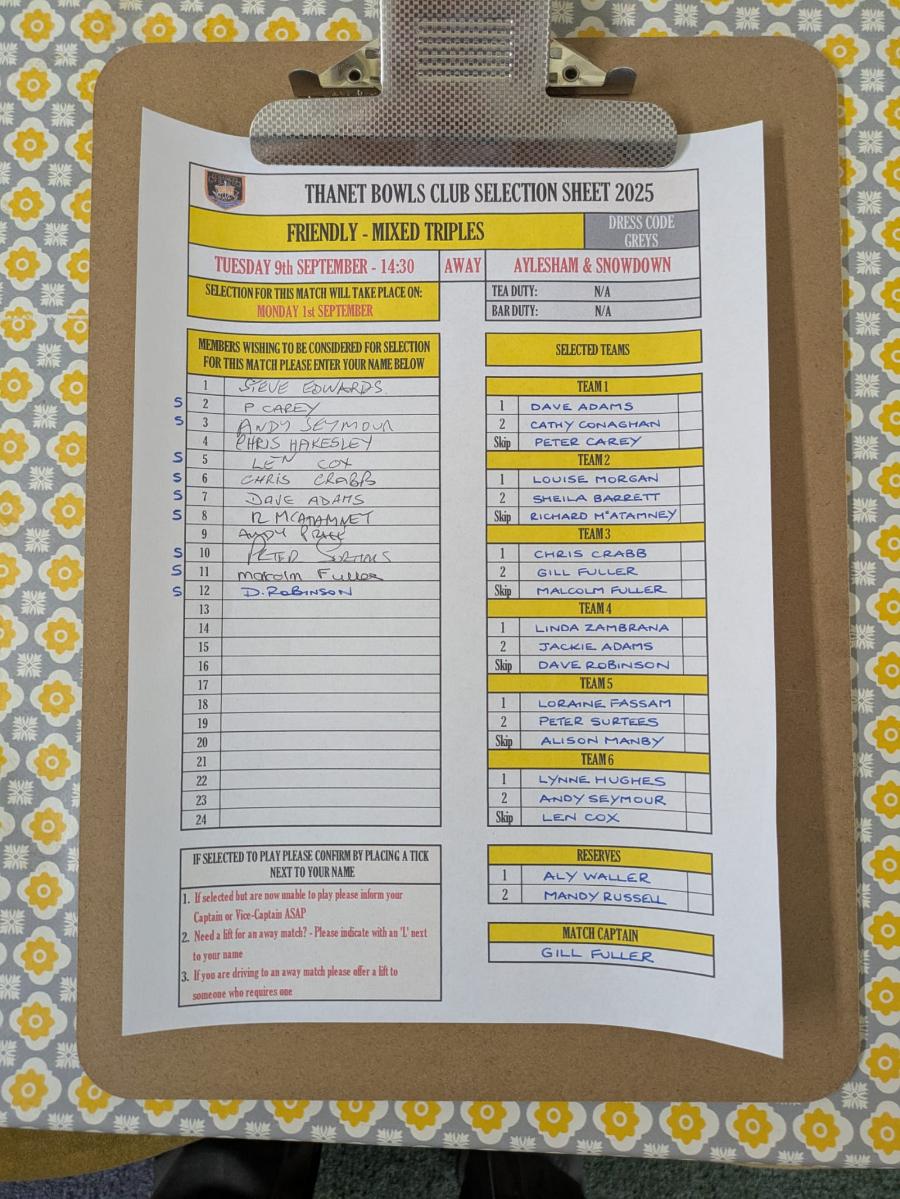 THANET BOWLS CLUB SELECTION SHEET 2025
FRIENDLY - MIXED TRIPLES
DRESS CODE
GREYS
TUESDAY 9th SEPTEMBER - 14:30
AWAY
AYLESHAM & SNOWDOWN
SELECTION FOR THIS MATCH WILL TAKE PLACE ON:
MONDAY 1st SEPTEMBER
TEA DUTY: N/A
BAR DUTY: N/A
MEMBERS WISHING TO BE CONSIDERED FOR SELECTION
FOR THIS MATCH PLEASE ENTER YOUR NAME BELOW
1 STEVE EDWARDS.
S 2 P CAREY
S 3 ANDY SEYMOUR
4 CHRIS HAKESLEY
S 5 LEN COX
S 6 CHRIS CRABB
S 7 DAVE ADAMS
S 8 R MCATAMNEY
9 ANDY
S 10 PETER
S 11 Malcolm Fuller
S 12 D. ROBINSON
13
14
15
16
17
18
19
20
21
22
23
24
IF SELECTED TO PLAY PLEASE CONFIRM BY PLACING A TICK
NEXT TO YOUR NAME
1. If selected but are now unable to play please inform your
Captain or Vice-Captain ASAP
2. Need a lift for an away match? - Please indicate with an 'L' next
to your name
3. If you are driving to an away match please offer a lift to
someone who requires one
SELECTED TEAMS
TEAM 1
1 DAVE ADAMS
2 CATHY CONAGHAN
Skip PETER CAREY
TEAM 2
1 LOUISE MORGAN
2 SHEILA BARRETT
Skip RICHARD McATAMNEY
TEAM 3
1 CHRIS CRABB
2 GILL FULLER
Skip MALCOLM FULLER
TEAM 4
1 LINDA ZAMBRANA
2 JACKIE ADAMS
Skip DAVE ROBINSON
TEAM 5
1 LORAINE FASSAM
2 PETER SURTEES
Skip ALISON MANBY
TEAM 6
1 LYNNE HUGHES
2 ANDY SEYMOUR
Skip LEN COX
RESERVES
1 ALY WALLER
2 MANDY RUSSELL
MATCH CAPTAIN
GILL FULLER